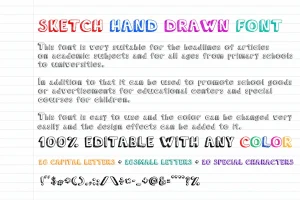 SKETCH HAND DRAWN FONT
This font is very suitable for the headlines of articles
on academic subjects and for all ages from primary schools
to universities.
In addition to that it can be used to promote school goods
or advertisements for educational centers and special
courses for children.
This font is easy to use and the color can be changed very
easily and the design effects can be added to it.
100% EDITABLE WITH ANY COLOR
26 CAPITAL LETTERS + 26SMALL LETTERS + 26 SPECIAL CHARACTERS